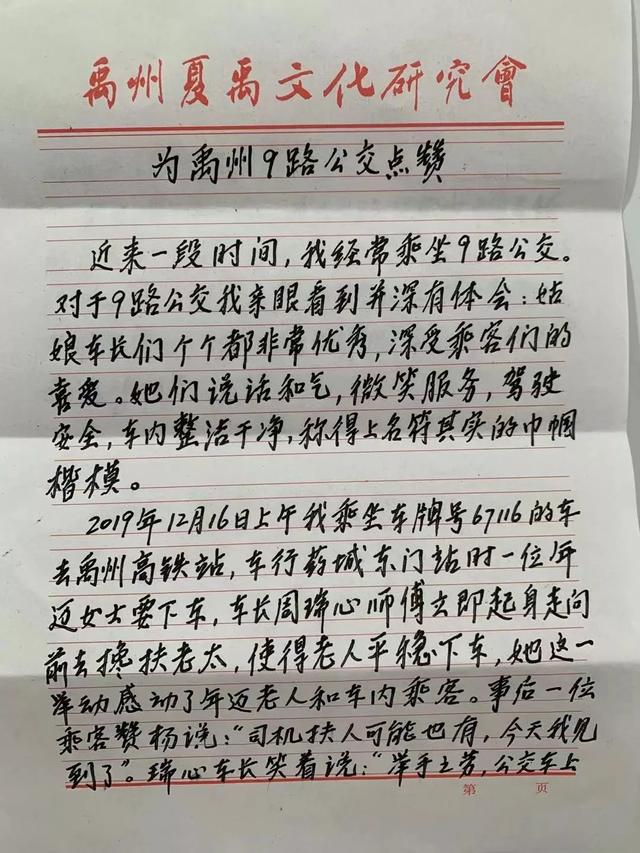 禹州夏禹文化研究會
为禹州9路公交点赞
近来一段时间，我经常乘坐9路公交。
对于9路公交我亲眼看到并深有体会：姑
娘车长们个个都非常优秀，深受乘客们的
喜爱。她们说话和气，微笑服务，驾驶
安全，车内整洁干净，称得上名符其实的巾帼
楷模。
2019年12月16日上午我乘坐车牌号67116的车
去禹州高铁站，车行药城东门站时一位年
迈女士要下车，车长周瑞心师傅立即起身走向
前去搀扶老太，使得老人平稳下车，她这一
举动感动了年迈老人和车内乘客。事后一位
乘客赞杨说：“司机扶人可能也有，今天我见
到了”。瑞心车长笑着说：“举手之劳，公交车上
第 页